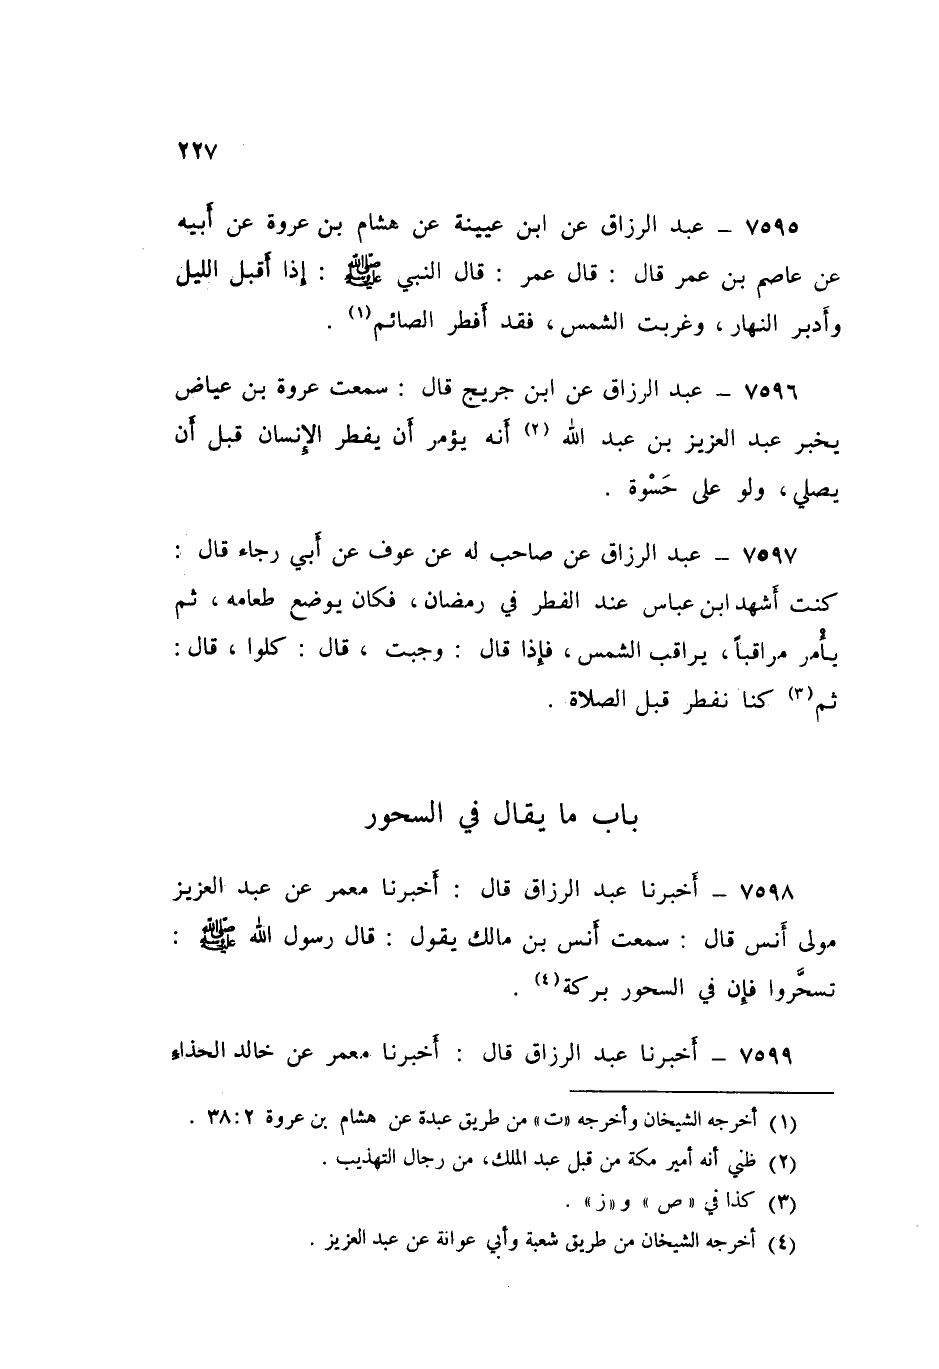 ٢٢٧
٧٥٩٥ ــ عبد الرزاق عن ابن عيينة عن هشام بن عروة عن أَبيه
عن عاصم بن عمر قال : قال عمر : قال النبي ﷺ : إذا أَقبل الليل
وأَدبر النهار ، وغربت الشمس ، فقد أَفطر الصائم(١) .
٧٥٩٦ ــ عبد الرزاق عن ابن جريج قال : سمعت عروة بن عياض
يخبر عبد العزيز بن عبد الله (٢) أَنه يؤمر أَن يفطر الإِنسان قبل أَن
يصلي ، ولو على حَسْوة .
٧٥٩٧ ــ عبد الرزاق عن صاحب له عن عوف عن أَبي رجاء قال :
كنت أَشهد ابن عباس عند الفطر في رمضان ، فكان يوضع طعامه ، ثم
يأْمر مراقباً ، يراقب الشمس ، فإِذا قال : وجبت ، قال : كلوا ، قال :
ثم(٣) كنا نفطر قبل الصلاة .
باب ما يقال في السحور
٧٥٩٨ ــ أَخبرنا عبد الرزاق قال : أَخبرنا معمر عن عبد العزيز
مولى أَنس قال : سمعت أَنس بن مالك يقول : قال رسول الله ﷺ :
تسحَّروا فإِن في السحور بركة(٤) .
٧٥٩٩ ــ أَخبرنا عبد الرزاق قال : أَخبرنا معمر عن خالد الحذاء
(١) أخرجه الشيخان وأخرجه «ت» من طريق عبدة عن هشام بن عروة ٢ : ٣٨ .
(٢) ظني أنه أمير مكة من قبل عبد الملك، من رجال التهذيب .
(٣) كذا في « ص » و «ز» .
(٤) أخرجه الشيخان من طريق شعبة وأبي عوانة عن عبد العزيز .